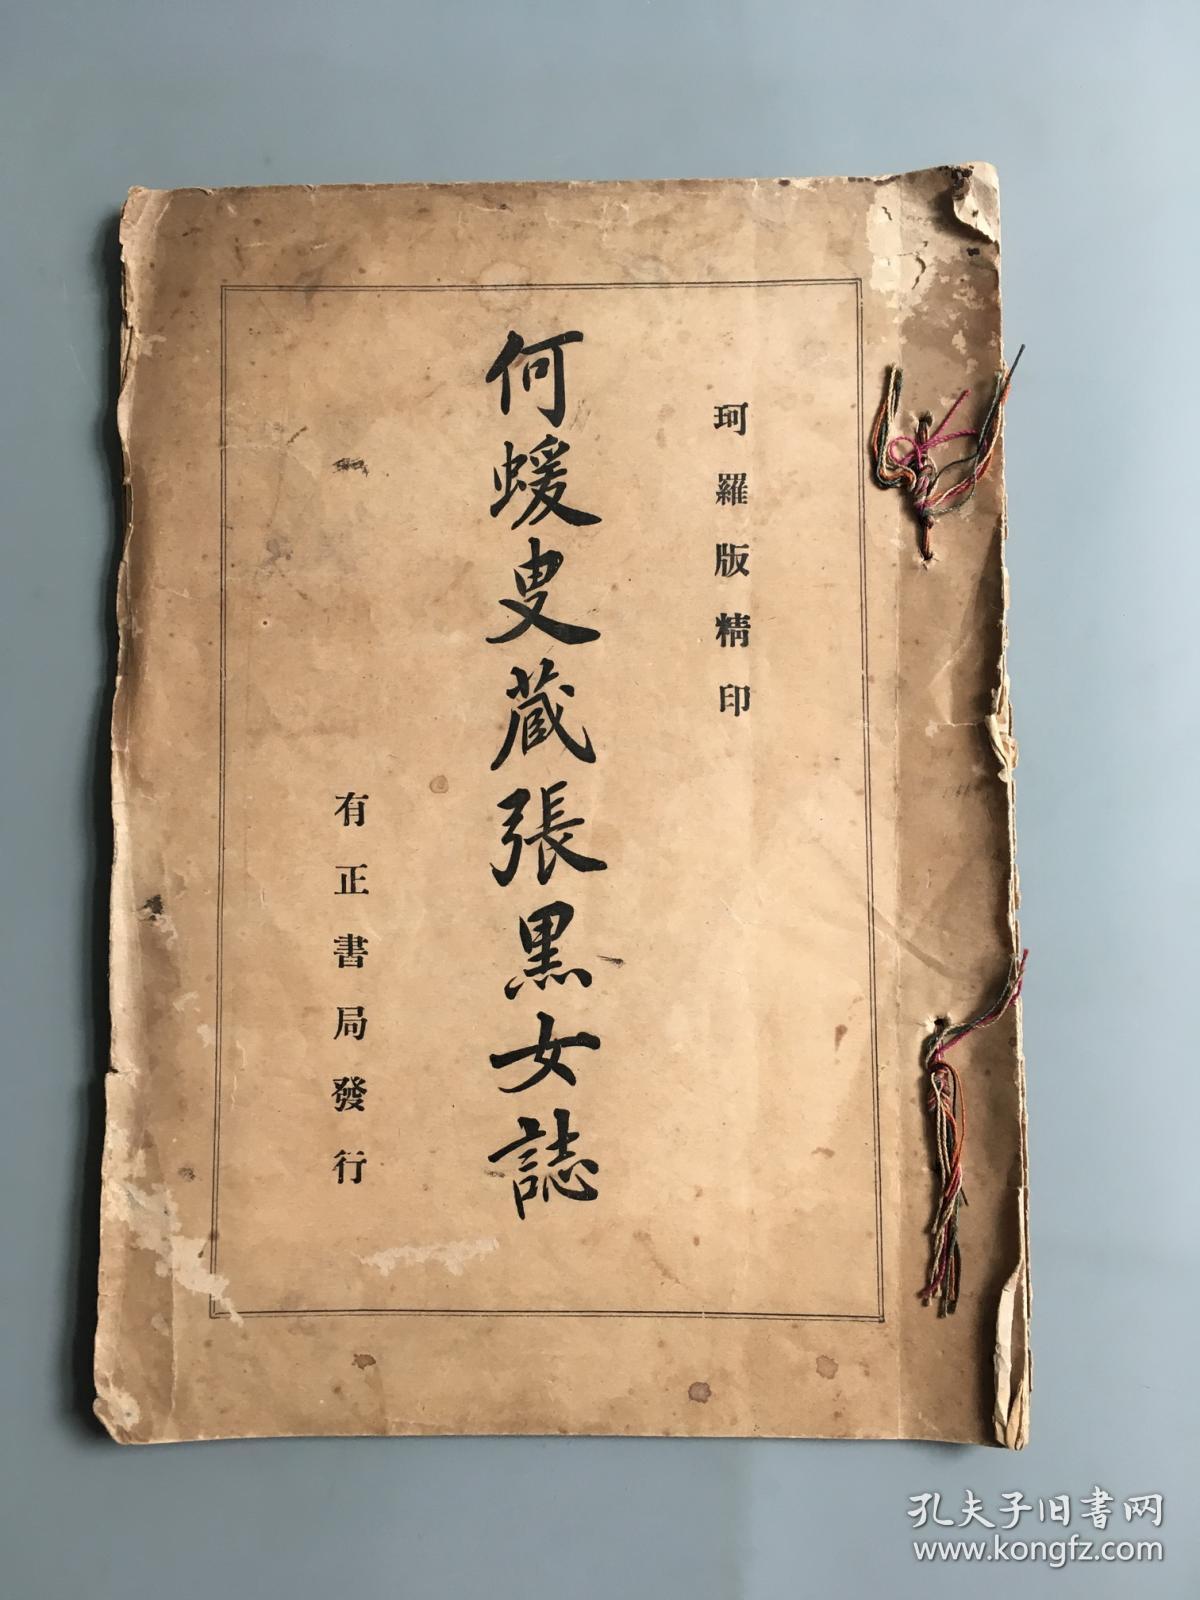 珂羅版精印
何蝯叟蔵張黒女誌
有正書局發行
孔夫子旧书网
www.kongfz.com